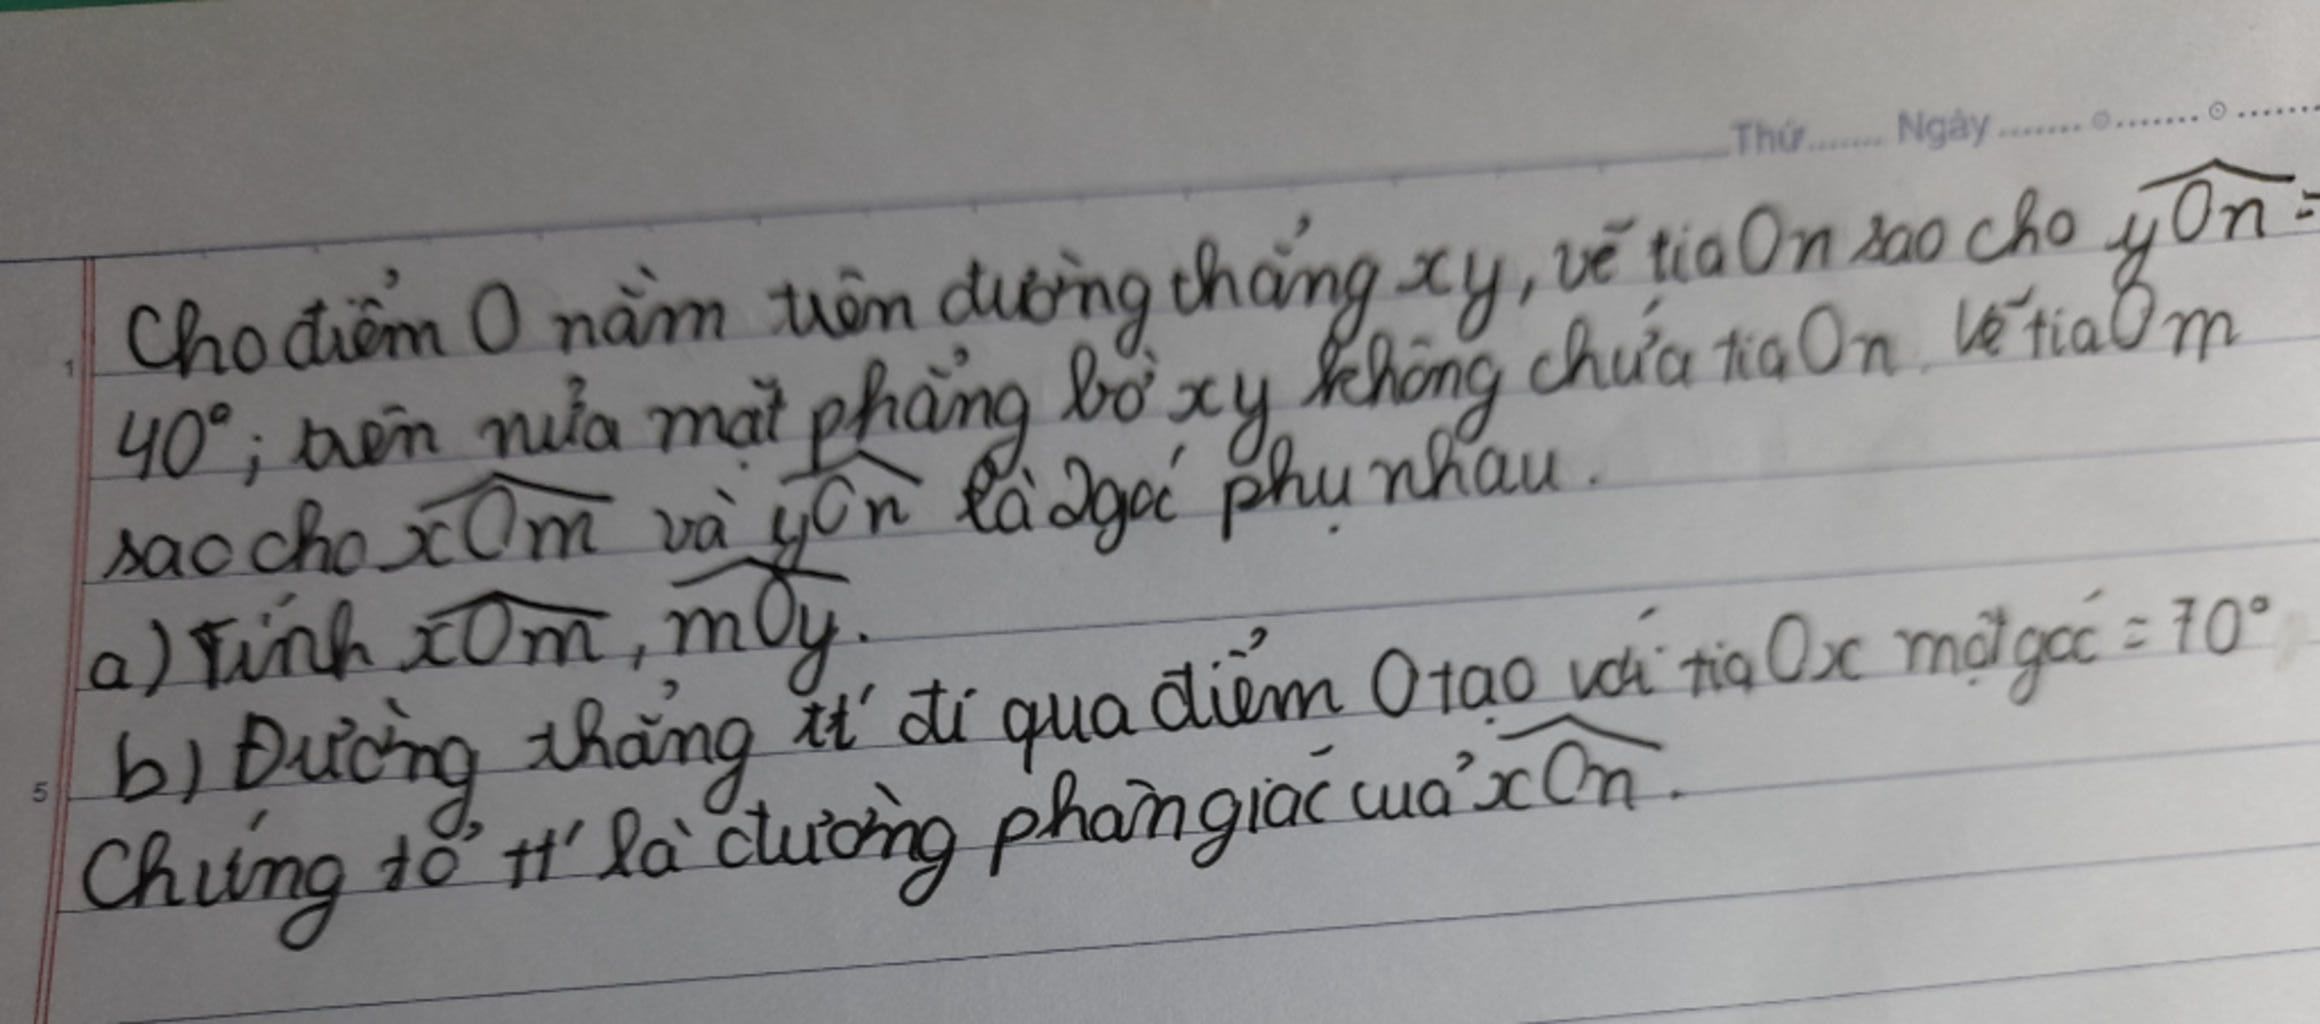 Thứ....... Ngày.................
Cho điểm O nằm trên đường thẳng xy, vẽ tia On sao cho yOn =
40°; trên nửa mặt phẳng bờ xy không chứa tia On vẽ tia Om
sao cho xOm và yOn là 2 goć phụ nhau.
a) Tính xOm, mOy.
b) Đường thẳng tt' đi qua điểm O tạo với tia Ox một goć = 70°
5
Chứng tỏ tt' là đường phân giác cuả xOn.